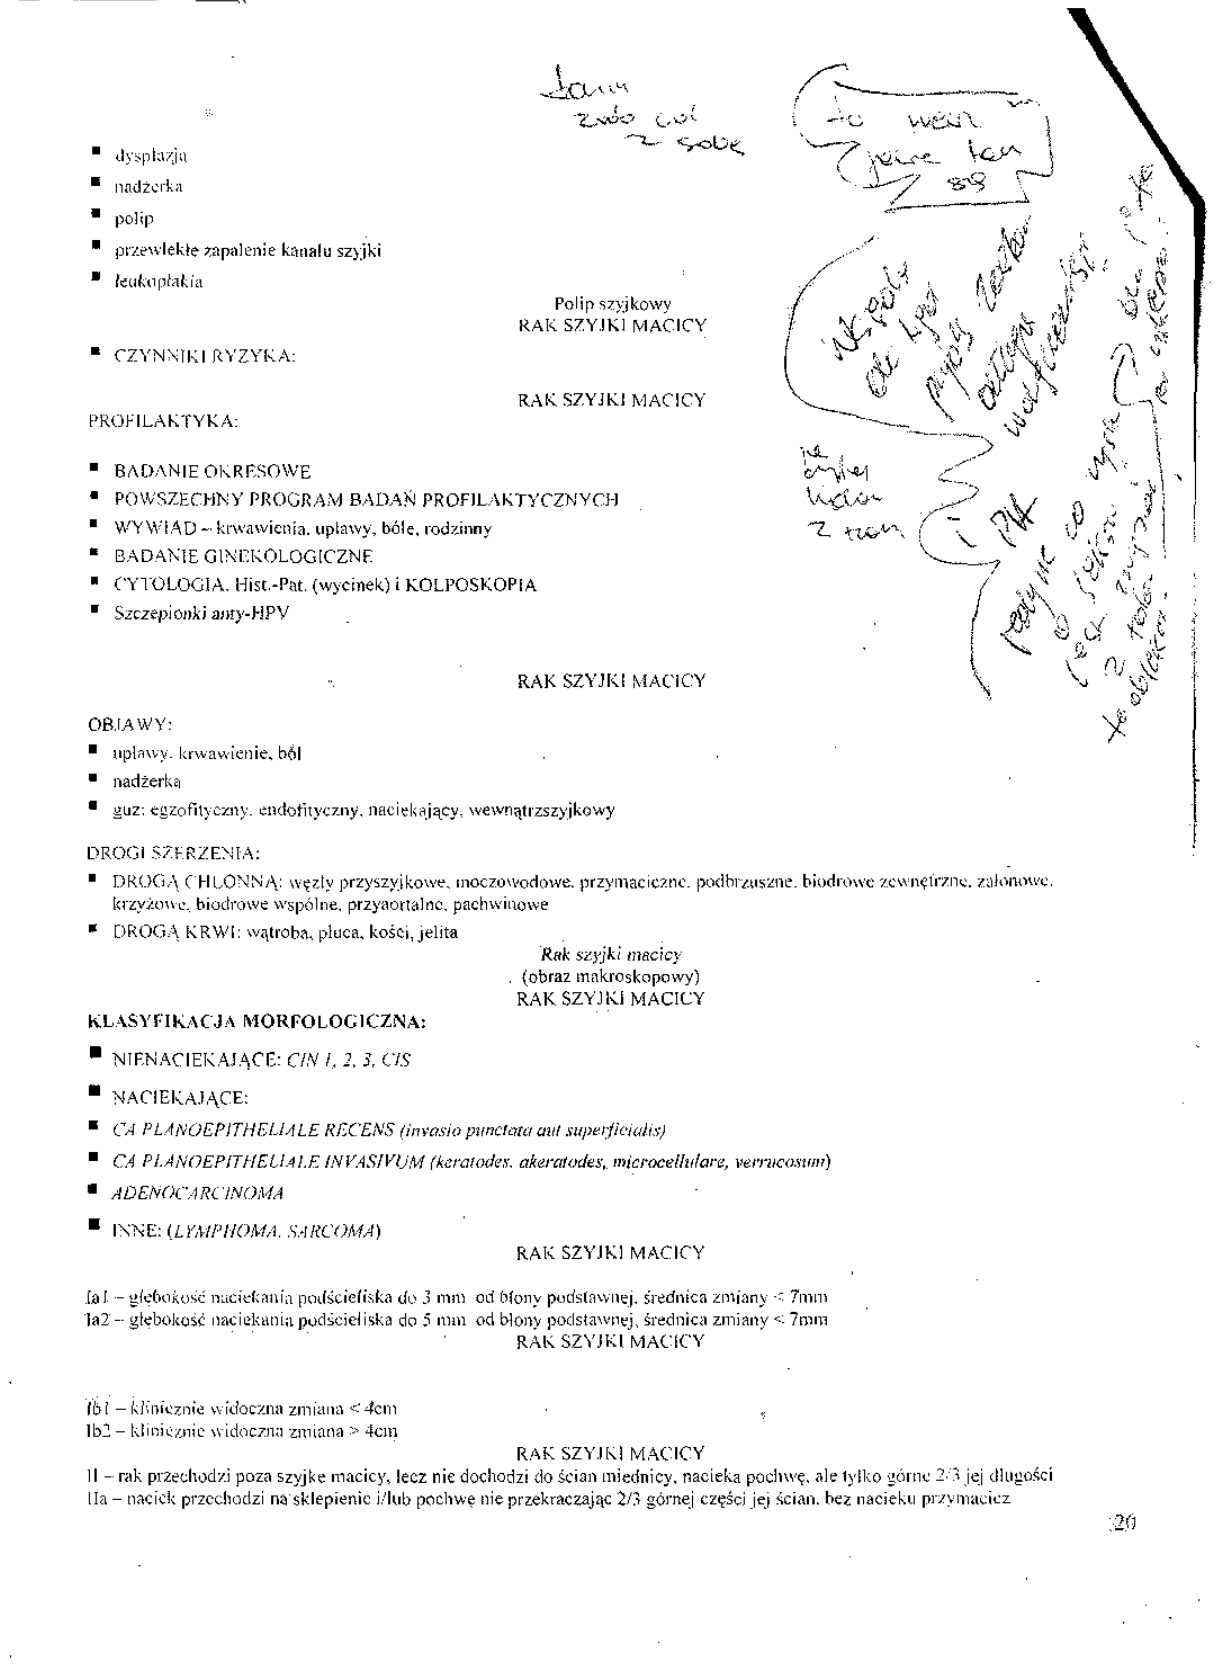 dysplazja
nadżerka
polip
przewlekłe zapalenie kanału szyjki
leukoplakia
Polip szyjkowy
RAK SZYJKI MACICY
CZYNNIKI RYZYKA:
RAK SZYJKI MACICY
PROFILAKTYKA:
BADANIE OKRESOWE
POWSZECHNY PROGRAM BADAŃ PROFILAKTYCZNYCH
WYWIAD – krwawienia, upławy, bóle, rodzinny
BADANIE GINEKOLOGICZNE
CYTOLOGIA, Hist.-Pat. (wycinek) i KOLPOSKOPIA
Szczepionki anty-HPV
RAK SZYJKI MACICY
OBJAWY:
upławy, krwawienie, ból
nadżerka
guz: egzofityczny, endofityczny, naciekający, wewnątrzszyjkowy
DROGI SZERZENIA:
DROGĄ CHŁONNĄ: węzły przyszyjkowe, moczowodowe, przymaciczne, podbrzuszne, biodrowe zewnętrzne, zasłonowe,
krzyżowe, biodrowe wspólne, przyaortalne, pachwinowe
DROGĄ KRWI: wątroba, płuca, kości, jelita
Rak szyjki macicy
(obraz makroskopowy)
RAK SZYJKI MACICY
KLASYFIKACJA MORFOLOGICZNA:
NIENACIEKAJĄCE: CIN 1, 2, 3, CIS
NACIEKAJĄCE:
CA PLANOEPITHELIALE RECENS (invasio punctata aut superficialis)
CA PLANOEPITHELIALE INVASIVUM (keratodes, akeratodes, microcellulare, verrucosum)
ADENOCARCINOMA
INNE: (LYMPHOMA, SARCOMA)
RAK SZYJKI MACICY
Ia1 – głębokość naciekania podścieliska do 3 mm od błony podstawnej, średnica zmiany < 7mm
Ia2 – głębokość naciekania podścieliska do 5 mm od błony podstawnej, średnica zmiany < 7mm
RAK SZYJKI MACICY
Ib1 – klinicznie widoczna zmiana < 4cm
Ib2 – klinicznie widoczna zmiana > 4cm
RAK SZYJKI MACICY
II – rak przechodzi poza szyjke macicy, lecz nie dochodzi do ścian miednicy, nacieka pochwę, ale tylko górne 2/3 jej długości
IIa – naciek przechodzi na sklepienie i/lub pochwę nie przekraczając 2/3 górnej części jej ścian, bez nacieku przymacicz
20